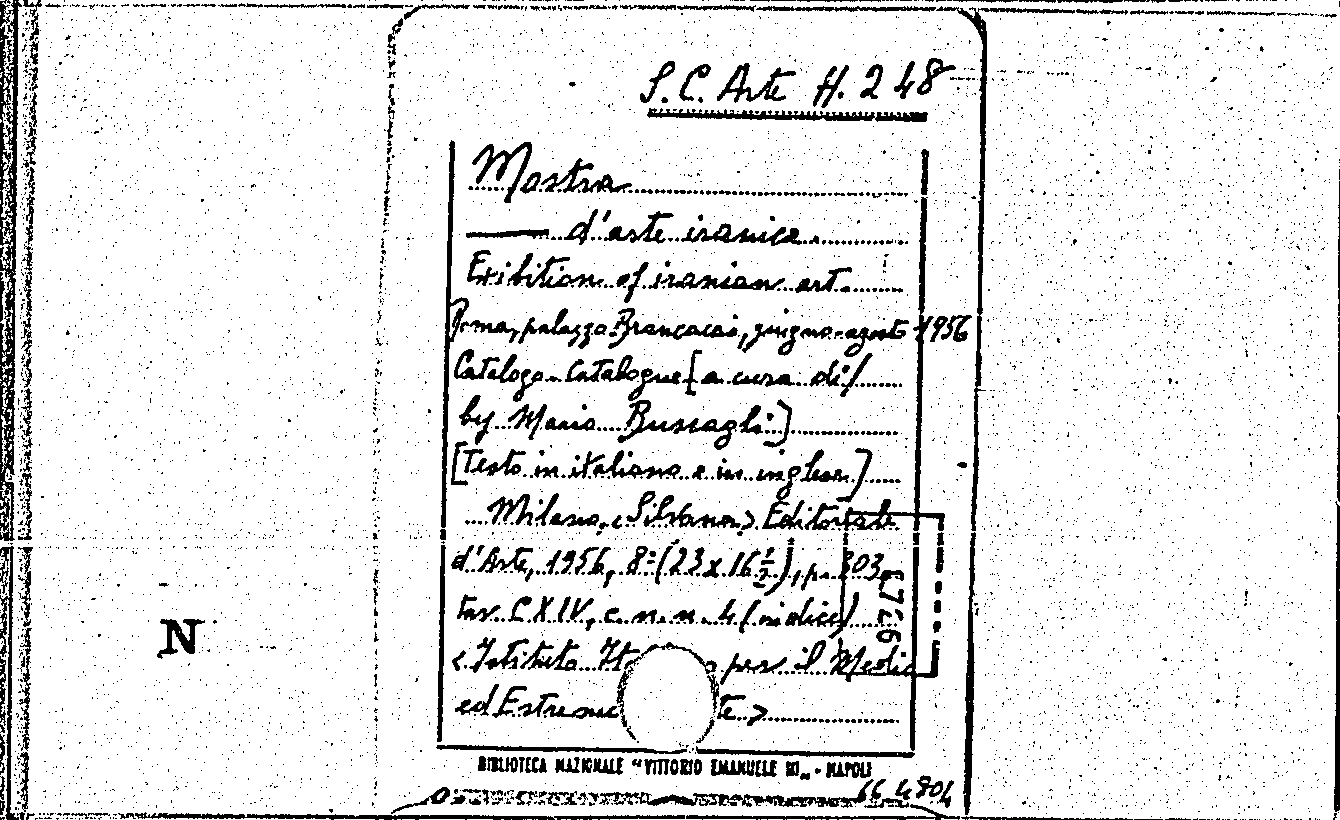 S.C. Arte H. 248
Mostra
d'arte iranica.
Exibition of iranian art.
Roma, palazzo Brancaccio, giugno-agosto 1956
Catalogo. Catalogue [a cura di/
by Mario Bussagli]
[Testo in italiano e in inglese]
Milano, <Silvana> Editoriale
d'Arte, 1956, 8º (23 x 16 1/2), p. 303,
tav. CXIV, c. n. n. 4 (indice)
<Istituto per il Medio
ed >
BIBLIOTECA NAZIONALE "VITTORIO EMANUELE III„ - NAPOLI
66 4804
N